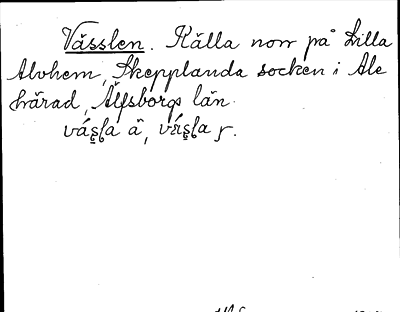 Vässlen. Källa norr på Lilla
Alvhem, Skepplanda socken i Ale
härad, Älfsborgs län.